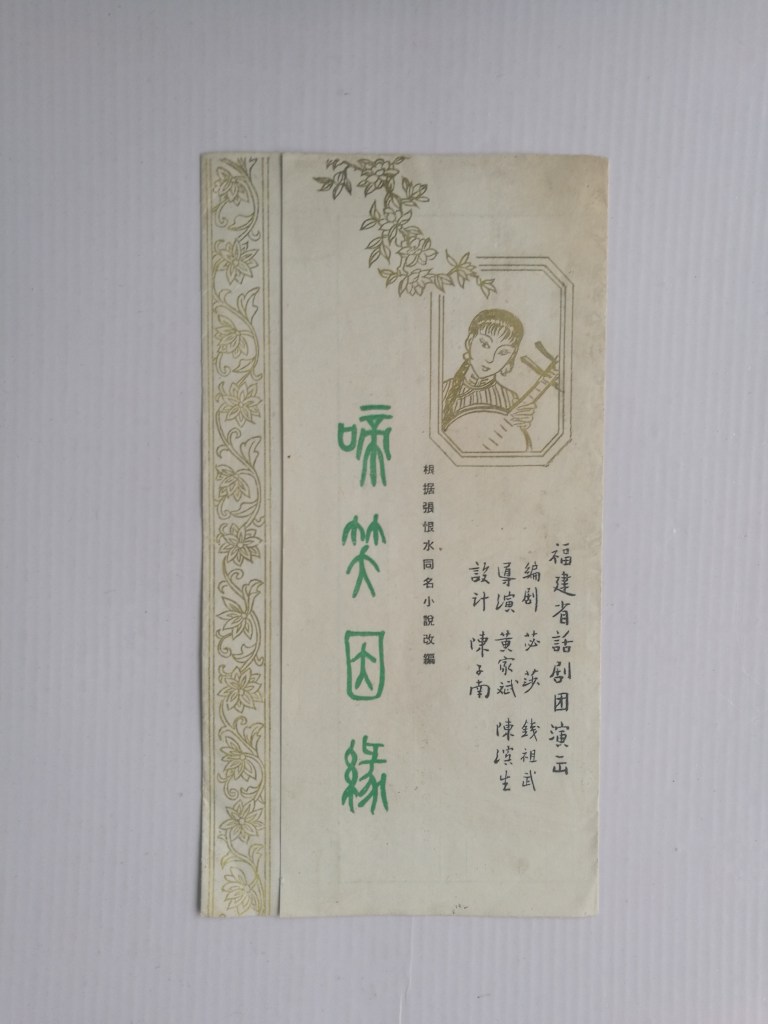 福建省話剧团演出
編剧 苾莎 錢祖武
導演 黄家斌 陳濱生
設计 陳子南
根据張恨水同名小說改編
啼笑因緣